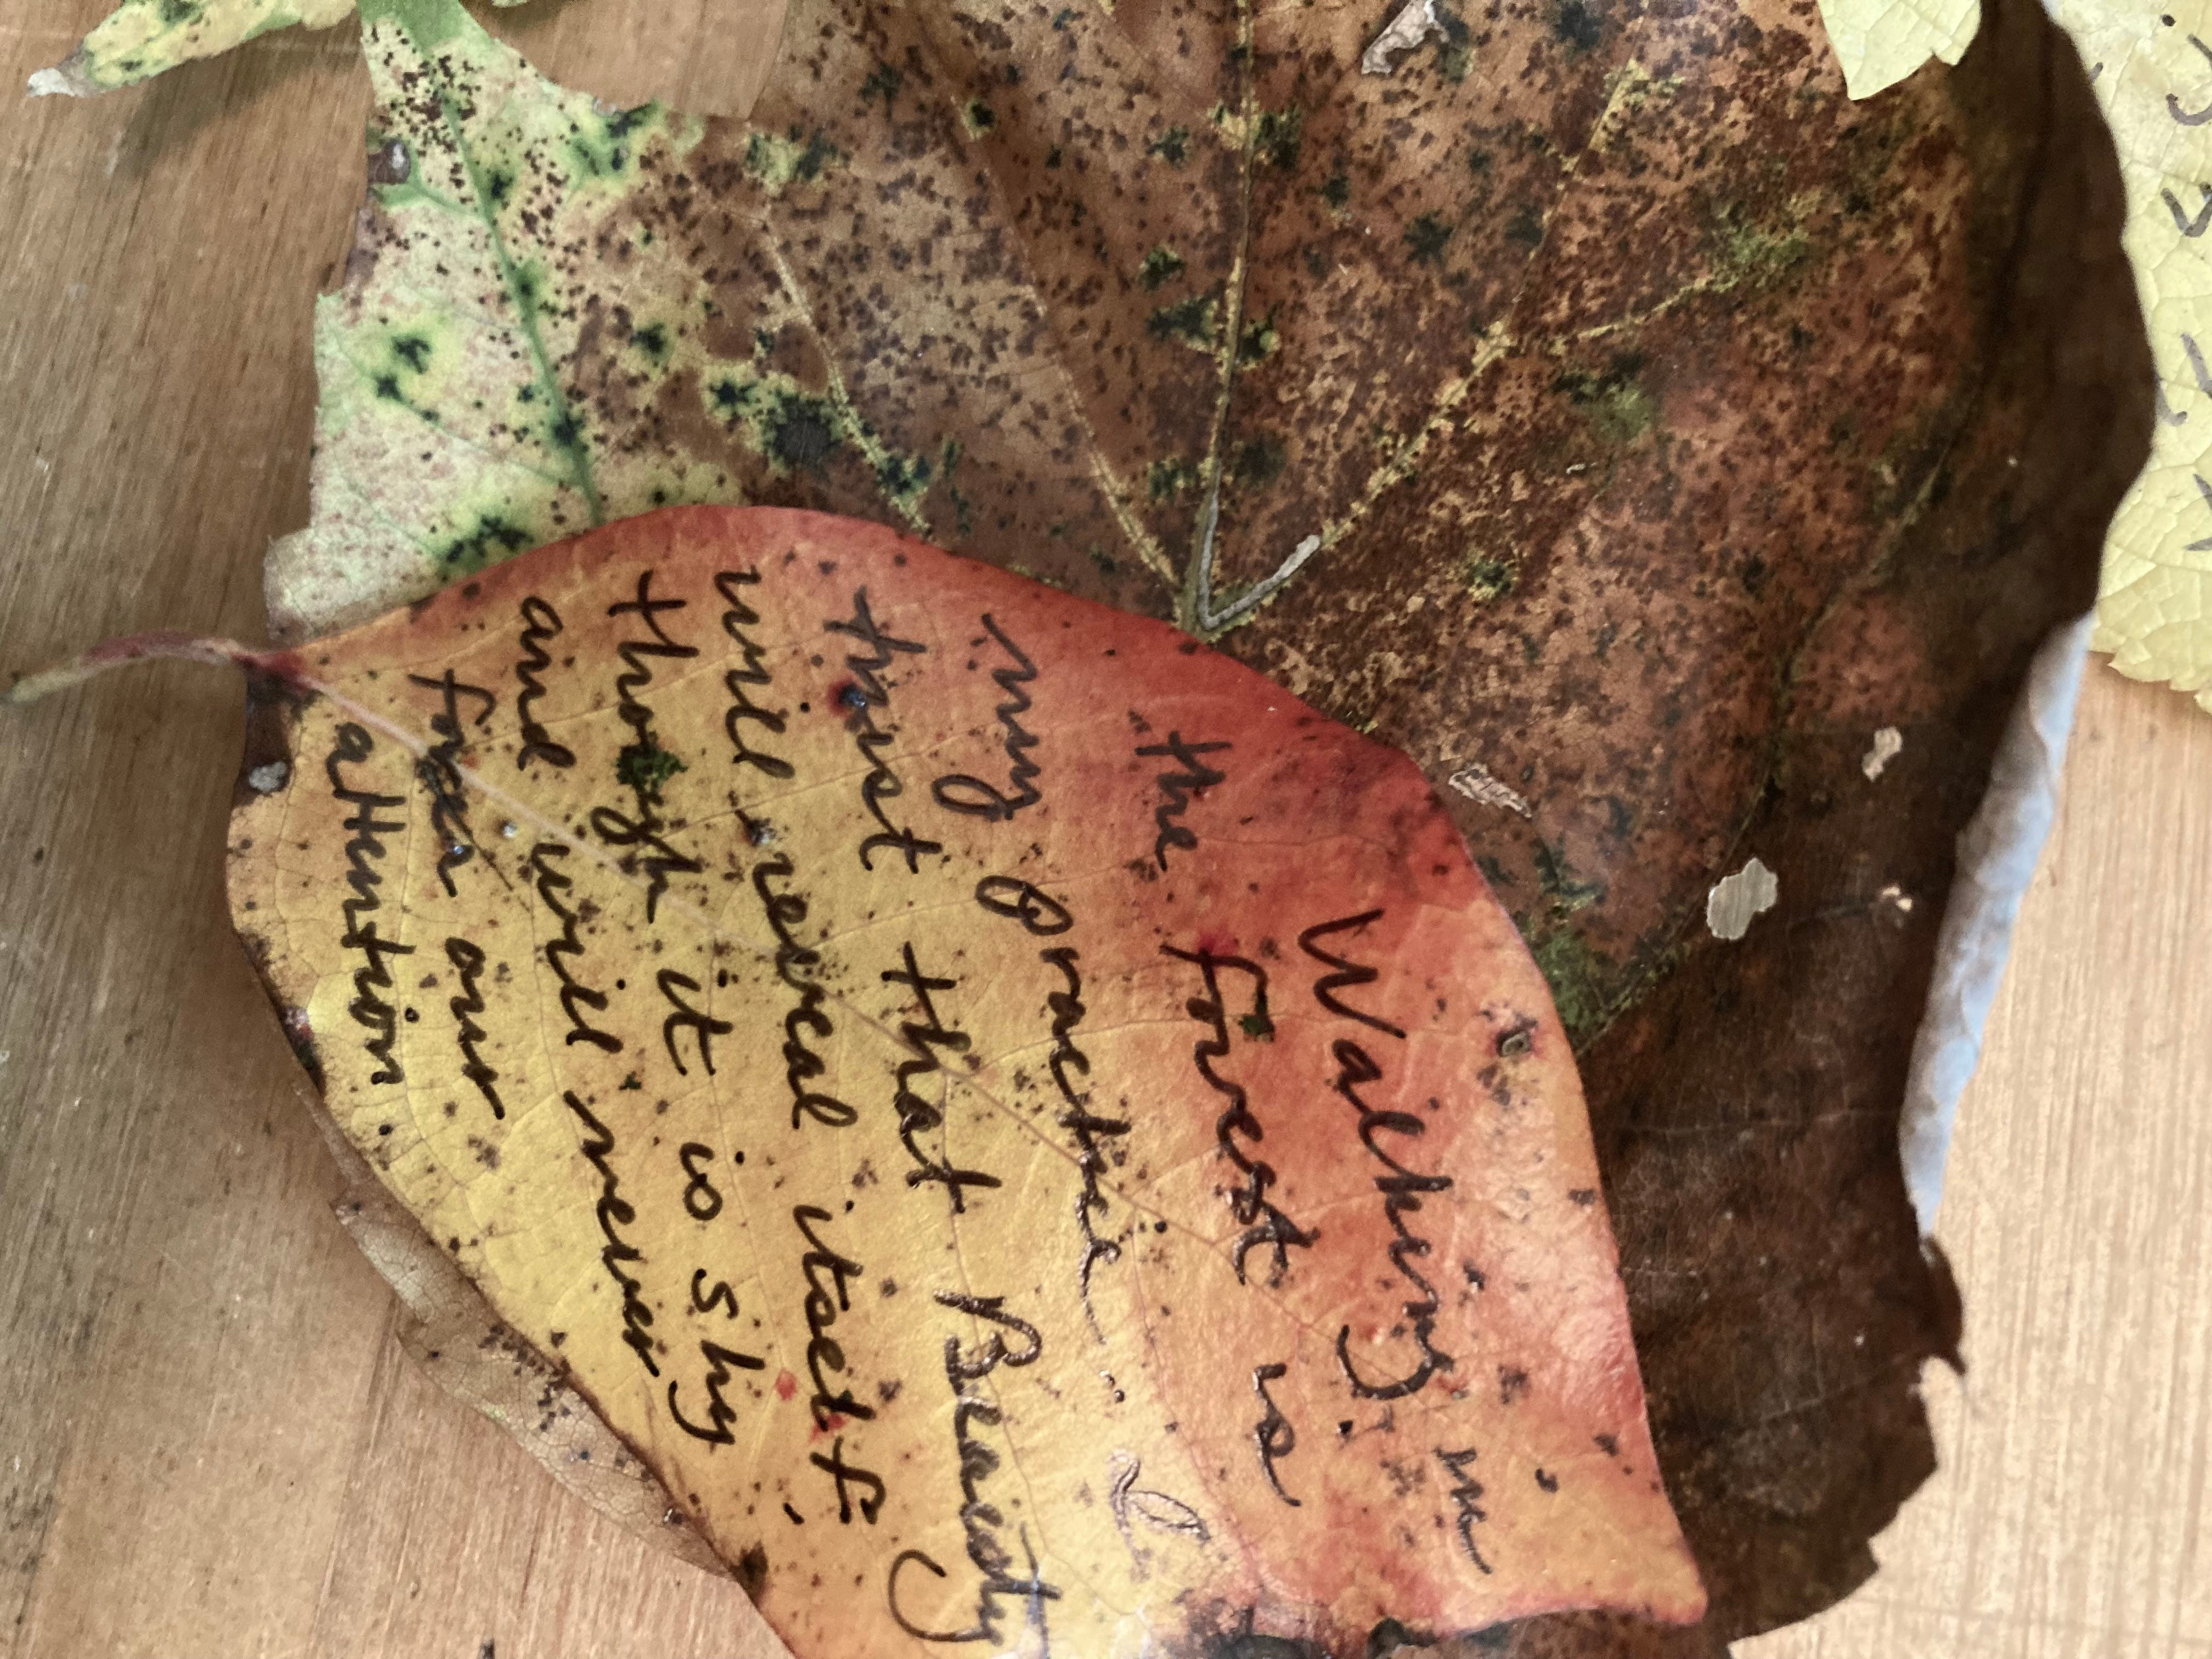 Walking in
the forest is
my practice. I
trust that Beauty
will reveal itself,
though it is shy
and will never
force our
attention